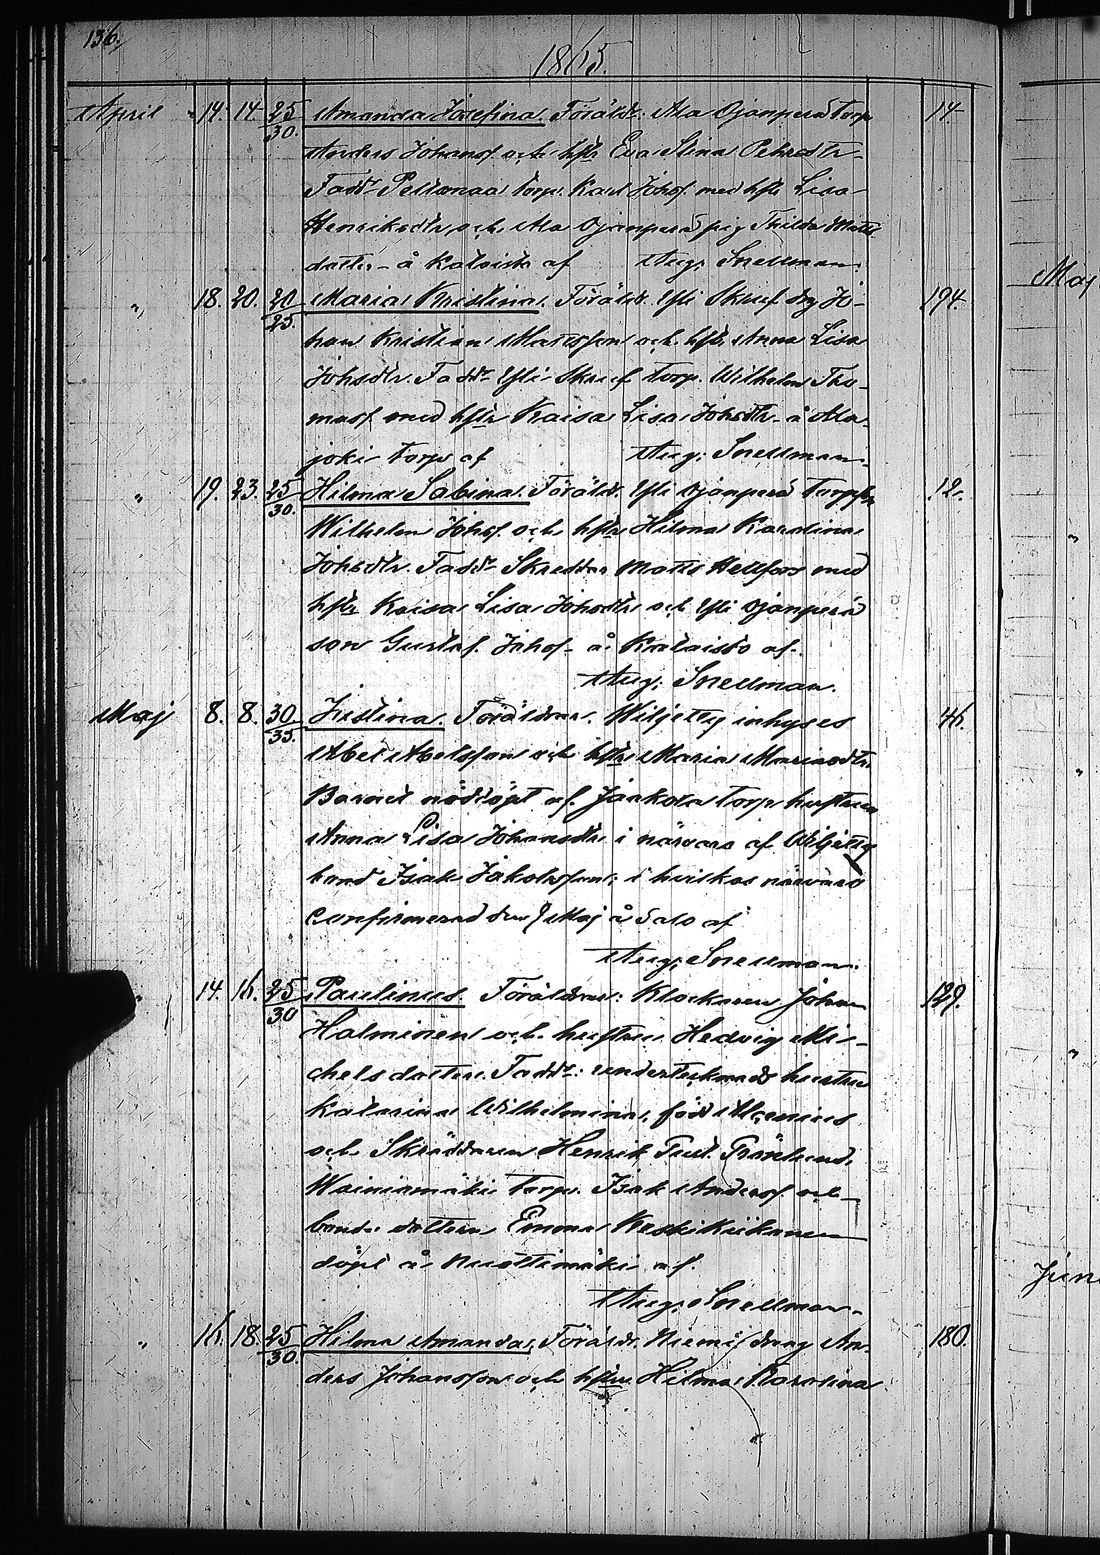 136.
1865.
April 14. 14. 25/30. Amanda Josefina. Föräldr. Ala Ojanperä Torp. 14.
Anders Johansf. och hstr Eva Stina Petersdtr.
Fadd. torp. Karl Johsf. med hstr Lisa
Henriksdtr, och Ala Ojanperä pig. Thilda Matts
dotter. å Kalaisto af Aug. Snellman.
" 18. 20. 20/25. Maria Kristina. Föräldr. Yli Skruf drg Jo- 194.
han Kristian Mattsson och hstr. Anna Lisa
Johsdtr. Fadd. Yli Skruf torp. Wilhelm Tho-
masf. med hstr Kaisa Lisa Johsdtr. å Ala-
joki torp af Aug. Snellman.
" 19. 23. 25/30. Hilma Sabina. Föräldr. Yli Ojanperä Torp. 12.
Wilhelm Johsf. och hstr Hilma Karolina
Johsdtr. Fadd. Skreddar Matts Hellfors med
hstr Kaisa Lisa Johsdtr och Yli Ojanperä
son Gustaf Johsf. å Kalaisto af.
Aug. Snellman.
Maj 8. 8. 30/35. Justina. Föräldrar. inhyses 46.
Abel Abelsson och hstr Maria Mariasdtr.
Barnet nöddöpt af Jaakola torp. hustrun
Anna Lisa Johansdtr i närvaro af
bond Isak Jakobsson, i hvilkas närvaro
confirmerad den 8 Maj å Salo af
Aug. Snellman.
" 14. 16. 25/30 Paulinus. Föräldrar: Klockaren Johan 129.
Halminen och hustru Hedvig Mi-
chelsdotter. Fadd: undertecknads hustru
Katarina Wilhelmina, född Alcenius
och Skräddaren Henrik Grönlund,
Wainiomäki Torp. Isak Andersf. och
bonde dottern Emma Keskikiikanen
döpt å Nuottimäki af.
Aug. Snellman.
" 16. 18. 25/30. Hilma Amanda. Föräldr. Niemis dräng An- 180.
ders Johansson och hstr Hilma Karolina
Maj
"
"
"
Juni